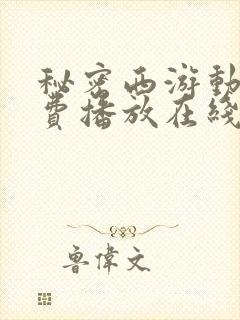 秘密西游動
費播放在綫
魯偉文